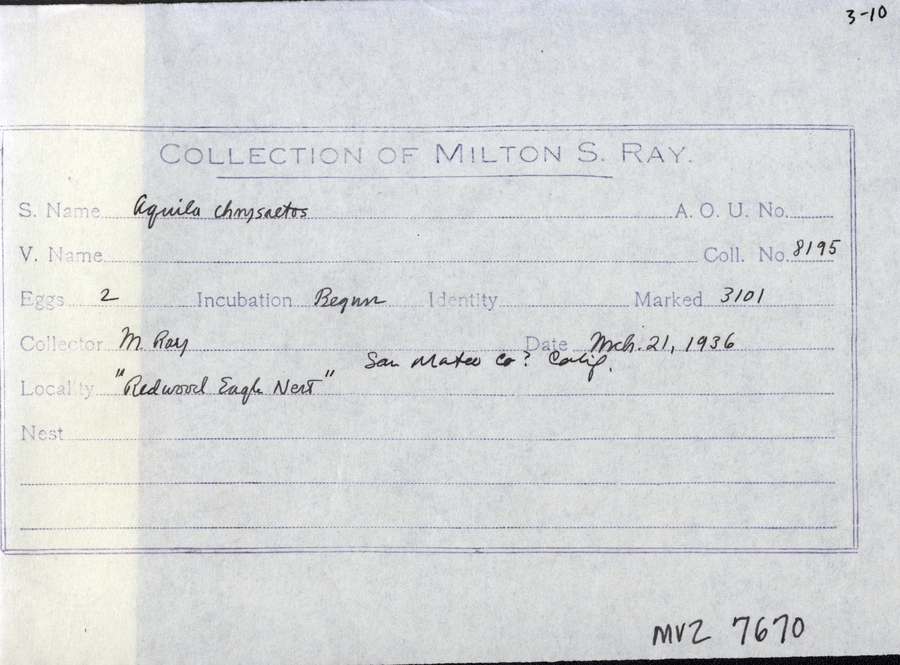 3-10
COLLECTION OF MILTON S. RAY.
S. Name Aquila chrysaetos A. O. U. No.
V. Name Coll. No. 8195
Eggs 2 Incubation Begun Identity Marked 3101
Collector M. Ray Date Mch. 21, 1936
San Mateo Co? Calif.
Locality "Redwood Eagle Nest"
Nest
MVZ 7670